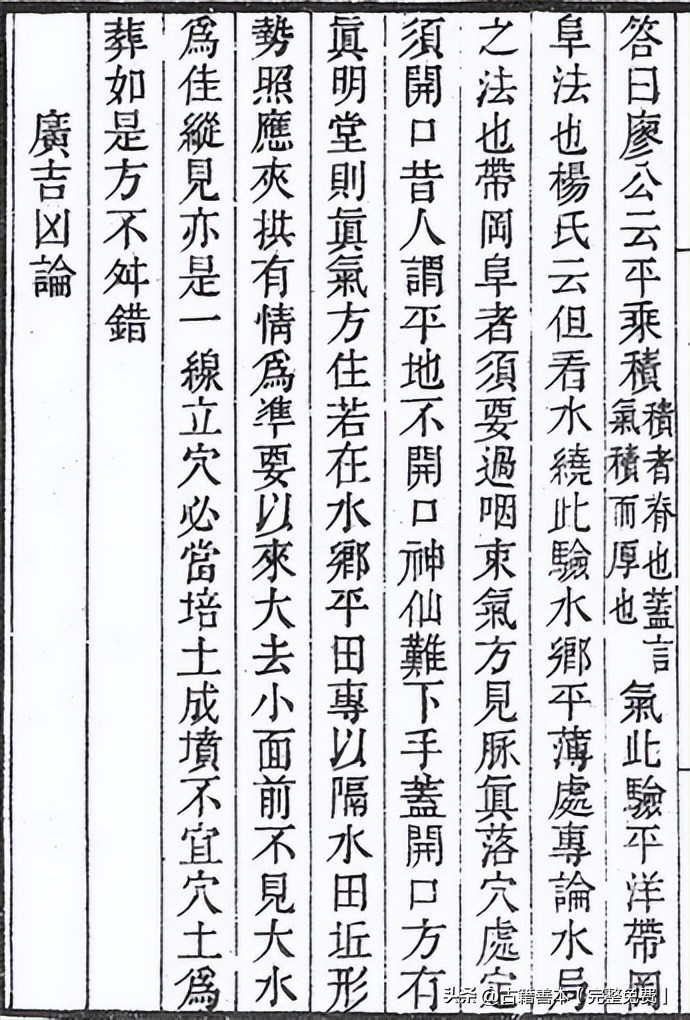 答曰廖公云平乘積積者脊也蓋言氣積而厚也氣此驗平洋帶岡
阜法也楊氏云但看水繞此驗水鄉平薄處專論水局
之法也帶岡阜者須要過咽束氣方見脉眞落穴處定
須開口昔人謂平地不開口神仙難下手蓋開口方有
眞明堂則眞氣方住若在水鄉平田專以隔水田近形
勢照應夾拱有情爲準要以來大去小面前不見大水
爲佳縱見亦是一線立穴必當培土成墳不宜穴土爲
葬如是方不舛錯
廣吉凶論
头条@古籍善本「完整免费」